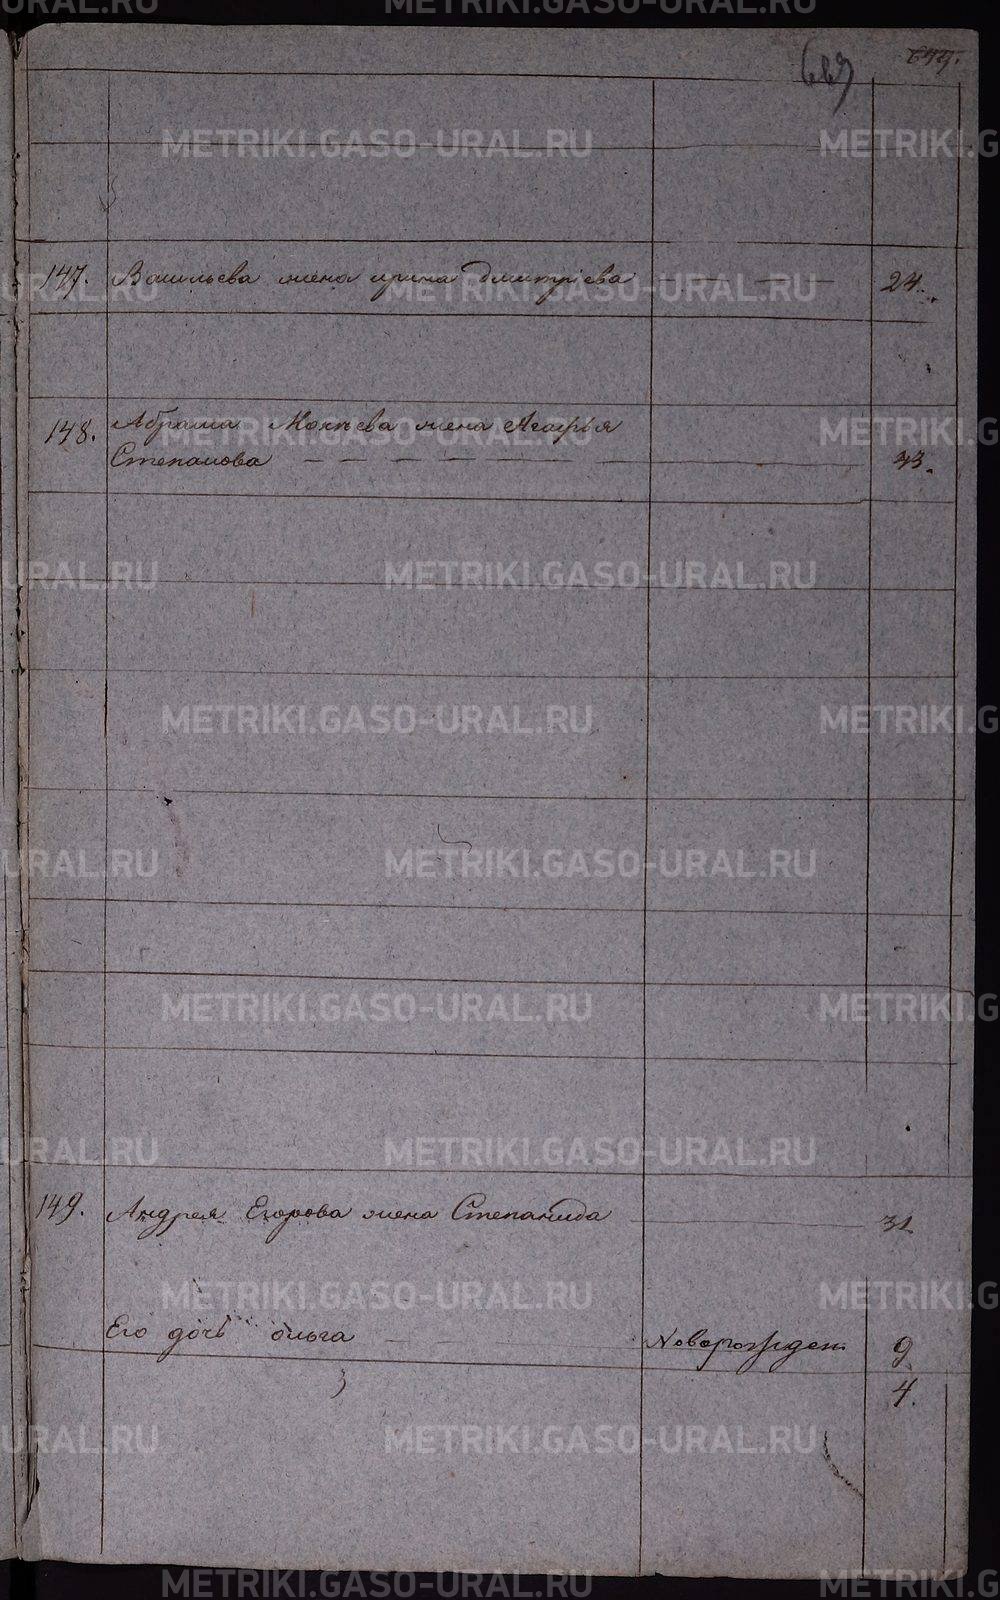 669
677.
147. Васильева жена ирина дмитріева — — — 24.
148. Абрама Мокѣева жена Агафья
Степанова — — — — — — 33.
149. Андрея Егорова жена Степанида 31
Его дочь ольга — Новорожден 9
4.
METRIKI.GASO-URAL.RU